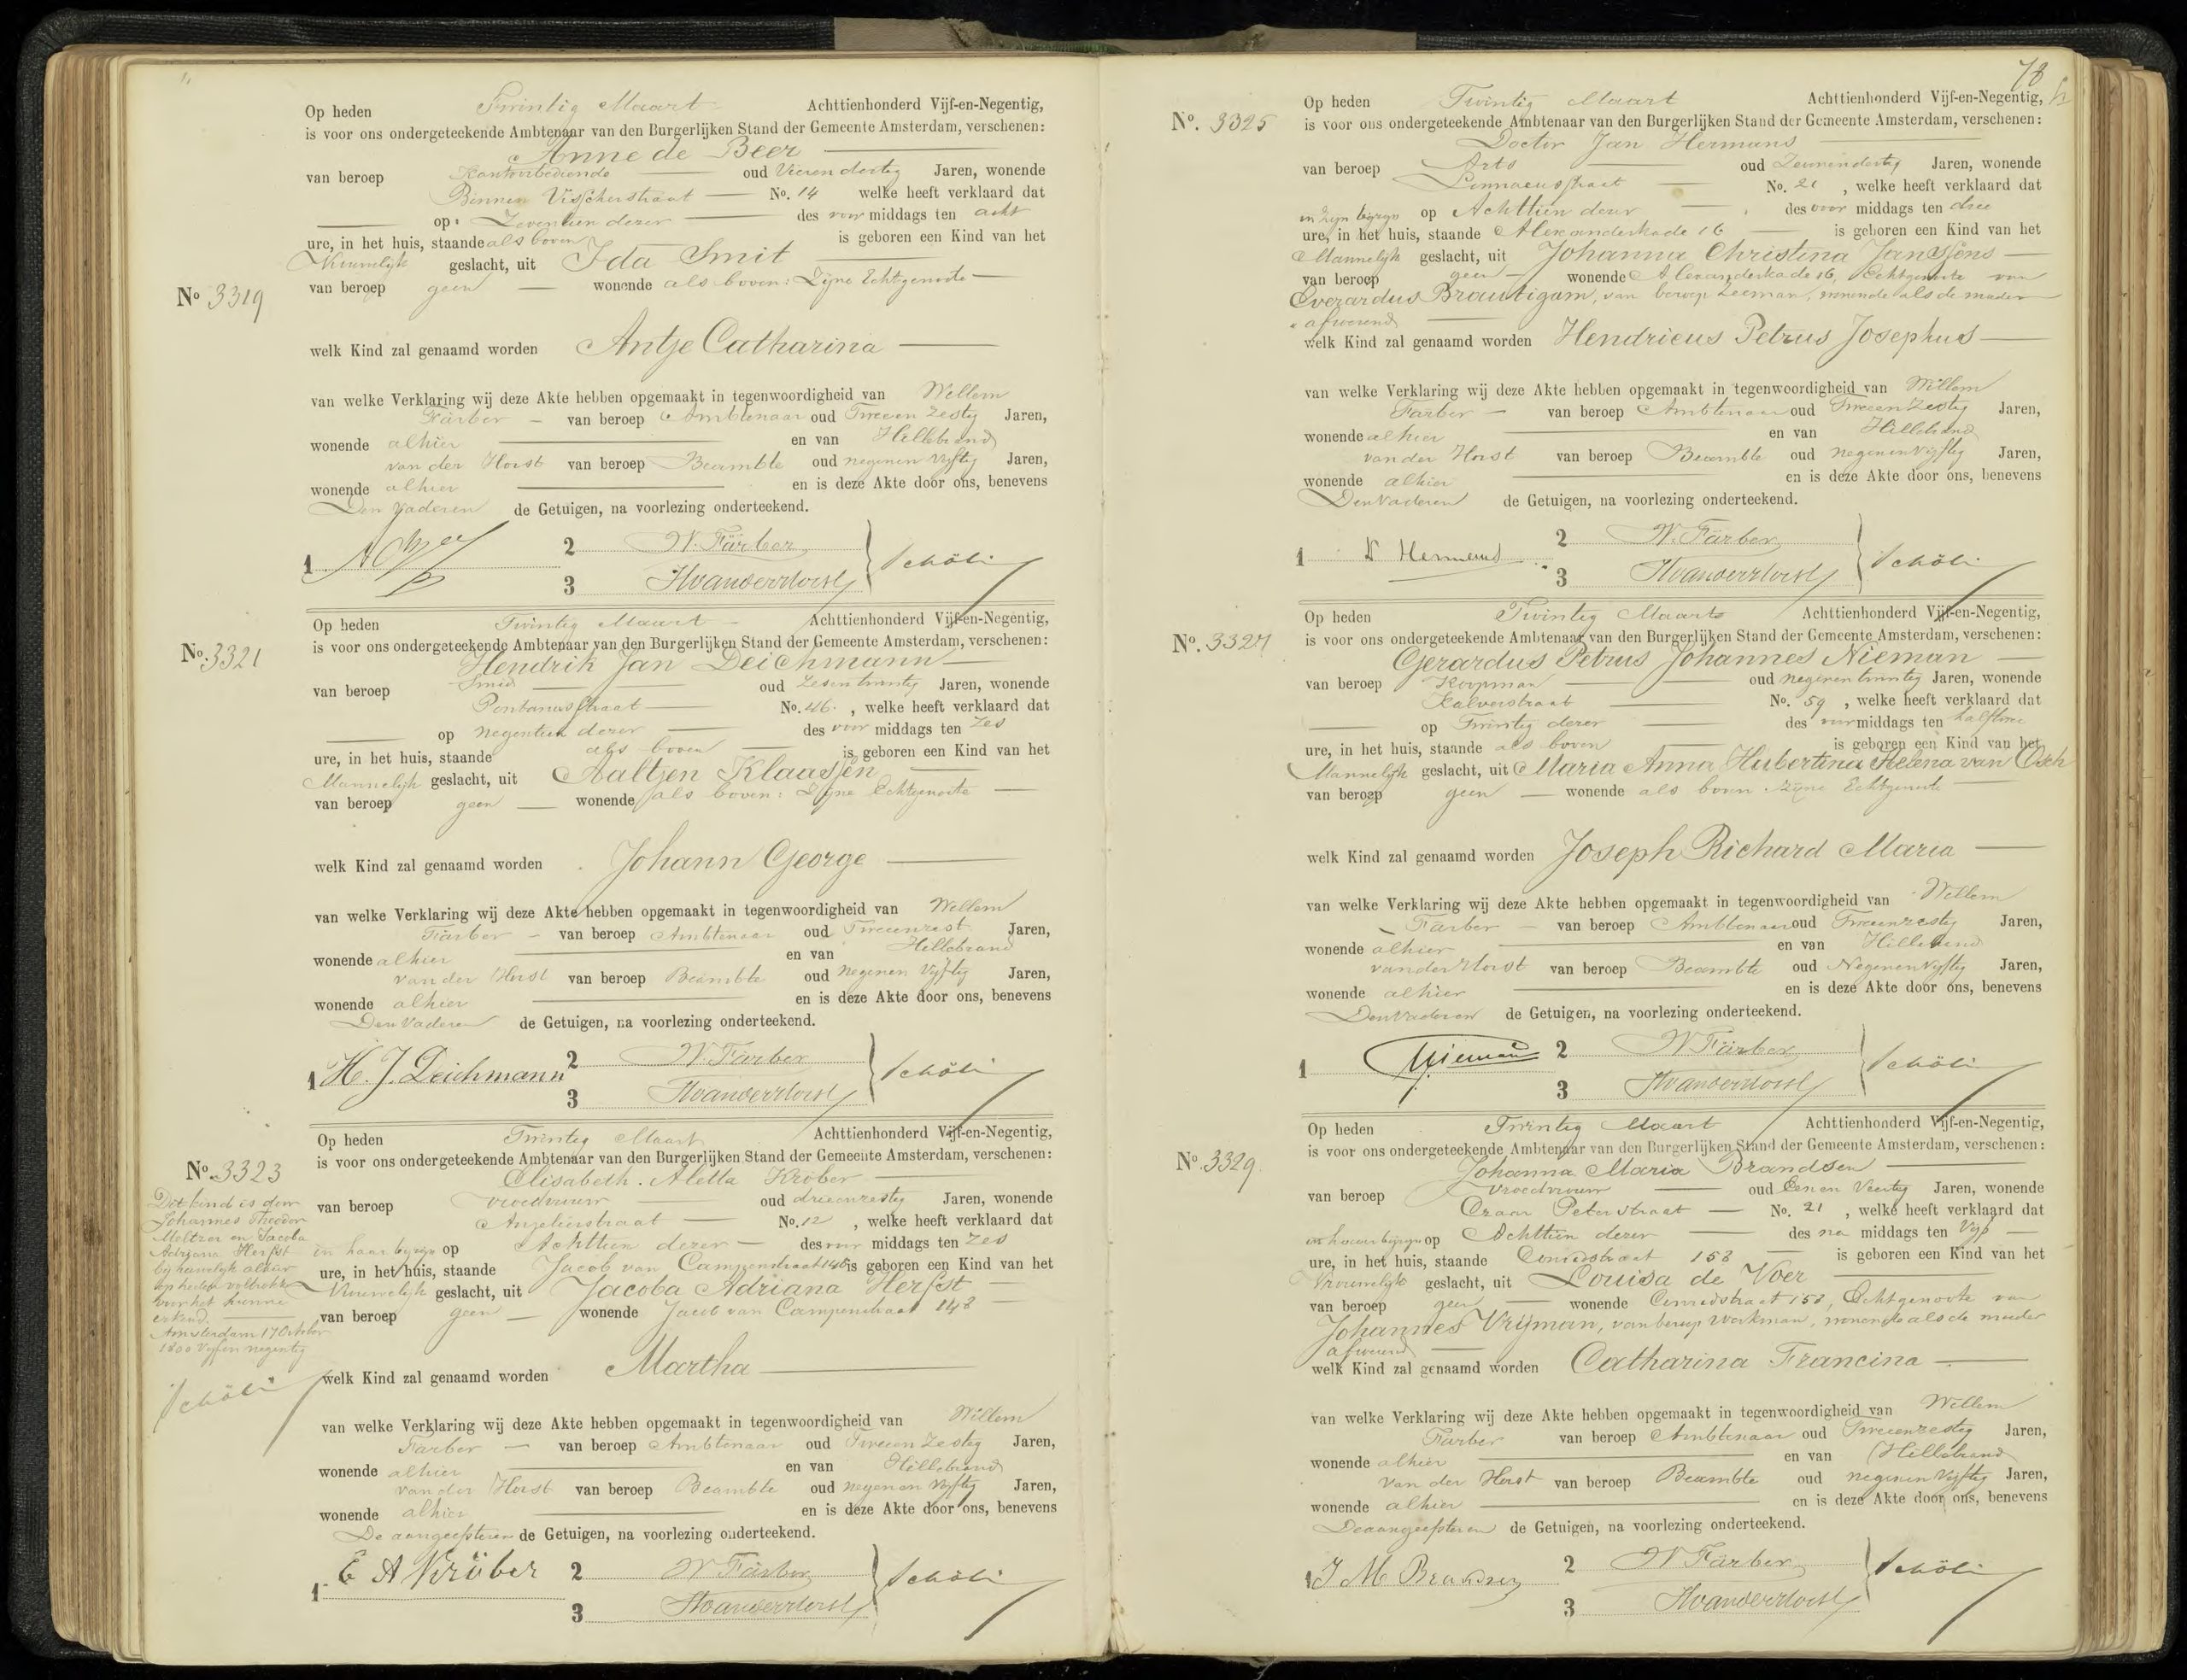 Op heden Twintig Maart Achttienhonderd Vijf-en-Negentig,
is voor ons ondergeteekende Ambtenaar van den Burgerlijken Stand der Gemeente Amsterdam, verschenen:
Anne de Beer
van beroep Kantoorbediende oud Vierendertig Jaren, wonende
Binnen Visscherstraat No. 14 welke heeft verklaard dat
op Zeventien dezer des voor middags ten acht
ure, in het huis, staande als boven is geboren een Kind van het
Vrouwelijk geslacht, uit Ida Smit
No 3319
van beroep geen wonende als boven: Zijne Echtgenoote
welk Kind zal genaamd worden Antje Catharina
van welke Verklaring wij deze Akte hebben opgemaakt in tegenwoordigheid van Willem
Färber van beroep Ambtenaar oud Tweeen Zestig Jaren,
wonende alhier en van Hillebrand
van der Horst van beroep Beambte oud negenen Vyftig Jaren,
wonende alhier en is deze Akte door ons, benevens
Den Vaderen de Getuigen, na voorlezing onderteekend.
1 2 W. Färber
3 HvanderHorst
Op heden Twintig Maart Achttienhonderd Vijf-en-Negentig,
No. 3321 is voor ons ondergeteekende Ambtenaar van den Burgerlijken Stand der Gemeente Amsterdam, verschenen:
Hendrik Jan Deichmann
van beroep Smid oud Zesentwintig Jaren, wonende
Pontanusstraat No. 46 , welke heeft verklaard dat
op negentien dezer des voor middags ten Zes
ure, in het huis, staande als boven is geboren een Kind van het
Mannelijk geslacht, uit Aaltjen Klaassen
van beroep geen wonende als boven: Zijne Echtgenoote
welk Kind zal genaamd worden Johann George
van welke Verklaring wij deze Akte hebben opgemaakt in tegenwoordigheid van Willem
Färber van beroep Ambtenaar oud Tweeenzest Jaren,
wonende alhier en van Hillebrand
van der Horst van beroep Beambte oud negenen Vyftig Jaren,
wonende alhier en is deze Akte door ons, benevens
Den Vaderen de Getuigen, na voorlezing onderteekend.
1 H. J. Deichmann 2 W. Färber
3 HvanderHorst
Op heden Twintig Maart Achttienhonderd Vijf-en-Negentig,
No. 3323 is voor ons ondergeteekende Ambtenaar van den Burgerlijken Stand der Gemeente Amsterdam, verschenen:
Elisabeth Aletta Kröber
van beroep vroedvrouw oud drieenzestig Jaren, wonende
Anjelierstraat No. 12 , welke heeft verklaard dat
in haar bijzijn op Achttien dezer des voor middags ten Zes
ure, in het huis, staande Jacob van Campenstraat 148 is geboren een Kind van het
Vrouwelijk geslacht, uit Jacoba Adriana Herfst
van beroep geen wonende Jacob van Campenstraat 148
welk Kind zal genaamd worden Martha
Dit kind is door
Johannes Theodor
Meltzer en Jacoba
Adriana Herfst
bij huwelijk alhier
op heden voltrokken
voor het hunne
erkend.
Amsterdam 17 October
1800 Vijf en negentig
van welke Verklaring wij deze Akte hebben opgemaakt in tegenwoordigheid van Willem
Färber van beroep Ambtenaar oud Tweeen Zestig Jaren,
wonende alhier en van Hillebrand
van der Horst van beroep Beambte oud negenen Vyftig Jaren,
wonende alhier en is deze Akte door ons, benevens
De aangeefsteren de Getuigen, na voorlezing onderteekend.
1 E A Kröber 2 W Färber
3 HvanderHorst
78
Op heden Twintig Maart Achttienhonderd Vijf-en-Negentig,
No. 3325 is voor ons ondergeteekende Ambtenaar van den Burgerlijken Stand der Gemeente Amsterdam, verschenen:
Doctor Jan Hermans
van beroep Arts oud Jaren, wonende
Linnaeusstraat No. 21 , welke heeft verklaard dat
in zijn bijzijn op Achttien dezer des voor middags ten drie
ure, in het huis, staande Alexanderkade 16 is geboren een Kind van het
Mannelijk geslacht, uit Johanna Christina Janssens
van beroep geen wonende Alexanderkade 16, Echtgenoote van
Everardus Brautigam, van beroep Zeeman, wonende als de moeder
afwezend
welk Kind zal genaamd worden Hendricus Petrus Josephus
van welke Verklaring wij deze Akte hebben opgemaakt in tegenwoordigheid van Willem
Färber van beroep Ambtenaar oud Tweeen Zestig Jaren,
wonende alhier en van Hillebrand
van der Horst van beroep Beambte oud negenen Vyftig Jaren,
wonende alhier en is deze Akte door ons, benevens
Den Vaderen de Getuigen, na voorlezing onderteekend.
1 Hermans 2 W. Färber
3 HvanderHorst
Op heden Twintig Maart Achttienhonderd Vijf-en-Negentig,
No. 3327 is voor ons ondergeteekende Ambtenaar van den Burgerlijken Stand der Gemeente Amsterdam, verschenen:
Gerardus Petrus Johannes Nieman
van beroep Koopman oud negenentwintig Jaren, wonende
Kalverstraat No. 59 , welke heeft verklaard dat
op Twintig dezer des voor middags ten
ure, in het huis, staande als boven is geboren een Kind van het
Mannelijk geslacht, uit Maria Anna Hubertina Helena van Osch
van beroep geen wonende als boven: Zijne Echtgenoote
welk Kind zal genaamd worden Joseph Richard Maria
van welke Verklaring wij deze Akte hebben opgemaakt in tegenwoordigheid van Willem
Färber van beroep Ambtenaar oud Tweeenzestig Jaren,
wonende alhier en van Hillebrand
van der Horst van beroep Beambte oud Negenen Vyftig Jaren,
wonende alhier en is deze Akte door ons, benevens
Den Vaderen de Getuigen, na voorlezing onderteekend.
1 Nieman 2 W Färber
3 HvanderHorst
Op heden Twintig Maart Achttienhonderd Vijf-en-Negentig,
No. 3329 is voor ons ondergeteekende Ambtenaar van den Burgerlijken Stand der Gemeente Amsterdam, verschenen:
Johanna Maria Brandsen
van beroep Vroedvrouw oud Eenen Veertig Jaren, wonende
Czaar Peterstraat No. 21 , welke heeft verklaard dat
in haar bijzijn op Achttien dezer des na middags ten Vyf
ure, in het huis, staande Conradstraat 158 is geboren een Kind van het
Vrouwelijk geslacht, uit Louisa de Voer
van beroep geen wonende Conradstraat 158, Echtgenoote van
Johannes Vrijman, van beroep Werkman, wonende als de moeder
afwezend
welk Kind zal genaamd worden Catharina Francina
van welke Verklaring wij deze Akte hebben opgemaakt in tegenwoordigheid van Willem
Färber van beroep Ambtenaar oud Tweeenzestig Jaren,
wonende alhier en van Hillebrand
van der Horst van beroep Beambte oud negenen Vyftig Jaren,
wonende alhier en is deze Akte door ons, benevens
De aangeefsteren de Getuigen, na voorlezing onderteekend.
1 J M Brandsen 2 W Färber
3 HvanderHorst